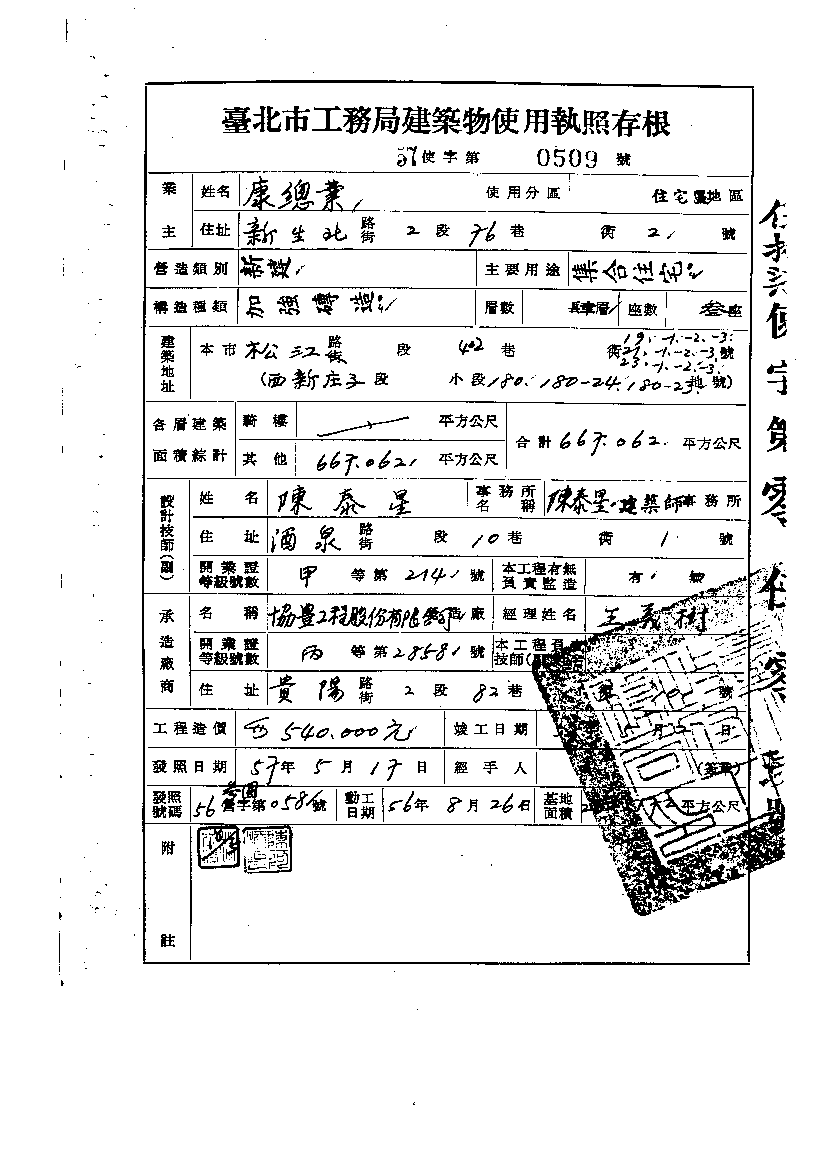 臺北市工務局建築物使用執照存根
57使字第 0509 號
業主 姓名 康總業 使用分區 住宅區地區
住址 新生北 路街 2 段 76 巷 衖 21 號
營造類別 新建 主要用途 集合住宅
構造種類 加強磚造 層數 層 座數 叁座
建築地址 本市 松江 路街 段 402 巷 衖 19.-1.-2.-3. 21.-1.-2.-3. 23.-1.-2.-3. 號
(西新庄子段 小段180.180-24.180-23地號)
各層建築面積綜計 騎樓 平方公尺 合計 667.062 平方公尺
其他 667.062 平方公尺
設計技師(副) 姓名 陳泰星 事務所名稱 陳泰星建築師事務所
住址 酒泉 路街 段 10 巷 衖 1 號
開業證等級號數 甲 等第 2141 號 本工程有無負責監造 有 無
承造廠商 名稱 協豊工程股份有限公司 造廠 經理姓名 王義樹
開業證等級號數 丙 等第 2858 號 本工程負責技師(副)
住址 貴陽 路街 2 段 82 巷 10 號
工程造價 540.000元 竣工日期 5 月 日
發照日期 57年 5月 17日 經手人
發照號碼 56 營字第0581號 動工日期 56年 8月 26日 基地面積 平方公尺
附註
使字第零伍零